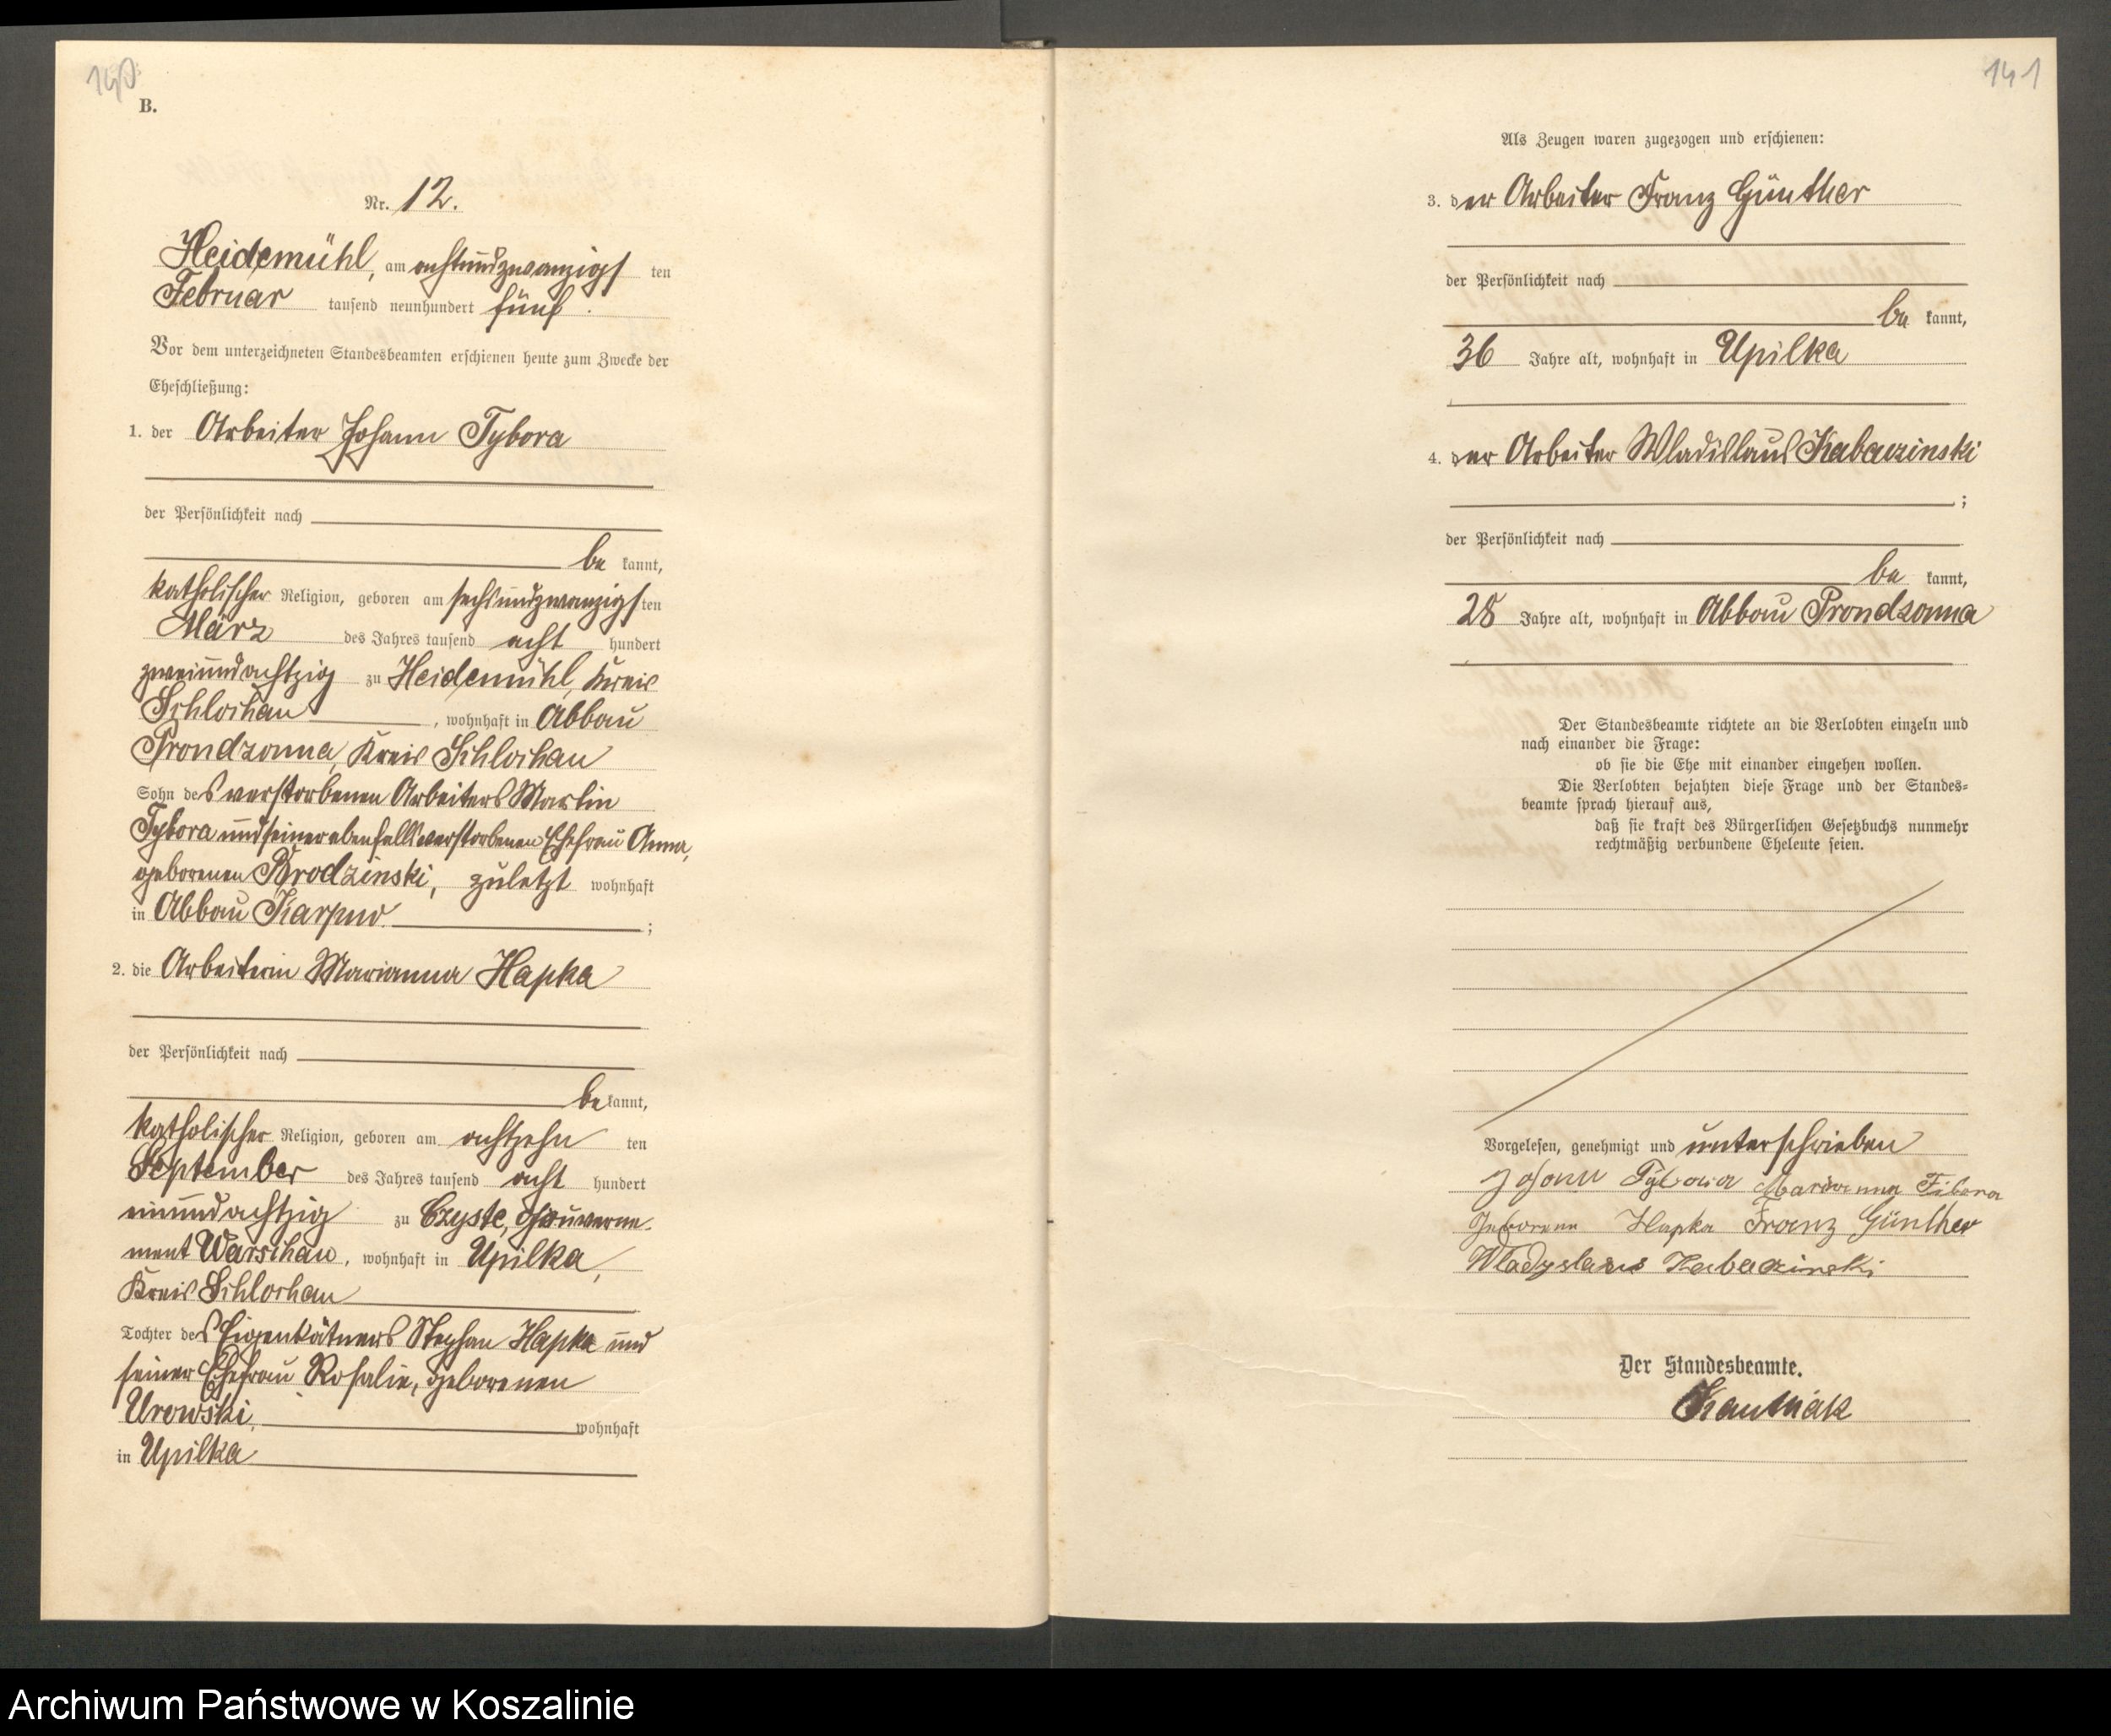 140
B.
Nr. 12.
Heidemühl, am achtundzwanzigsten
Februar tausend neunhundert fünf.
Vor dem unterzeichneten Standesbeamten erschienen heute zum Zwecke der
Eheschließung:
1. der Arbeiter Johann Tybora
der Persönlichkeit nach
bekannt,
katholischer Religion, geboren am sechsundzwanzigsten
März des Jahres tausend acht hundert
zweiundachtzig zu Heidemühl, Kreis
Schlochau, wohnhaft in Abbau
Prondzonna, Kreis Schlochau
Sohn des verstorbenen Arbeiters Martin
Tybora und seiner ebenfalls verstorbenen Ehefrau Anna,
geborenen Brodzinski, zuletzt wohnhaft
in Abbau Karpno;
2. die Arbeiterin Marianna Hapka
der Persönlichkeit nach
bekannt,
katholischer Religion, geboren am achtzehnten
September des Jahres tausend acht hundert
einundachtzig zu Czyste, Gouverne-
ment Warschau, wohnhaft in Upilka,
Kreis Schlochau
Tochter des Eigenkätners Stephan Hapka und
seiner Ehefrau Rosalie, geborenen
Urowski, wohnhaft
in Upilka
141
Als Zeugen waren zugezogen und erschienen:
3. der Arbeiter Franz Günther
der Persönlichkeit nach
bekannt,
36 Jahre alt, wohnhaft in Upilka
4. der Arbeiter Wladislaus Kabaczinski
;
der Persönlichkeit nach
bekannt,
28 Jahre alt, wohnhaft in Abbau Prondzonna
Der Standesbeamte richtete an die Verlobten einzeln und
nach einander die Frage:
ob sie die Ehe mit einander eingehen wollen.
Die Verlobten bejahten diese Frage und der Standes-
beamte sprach hierauf aus,
daß sie kraft des Bürgerlichen Gesetzbuchs nunmehr
rechtmäßig verbundene Eheleute seien.
Vorgelesen, genehmigt und unterschrieben
Johann Tybora Marianna Tibora
Geborene Hapka Franz Günther
Wladyslaus Kabaczinski
Der Standesbeamte.
Archiwum Państwowe w Koszalinie